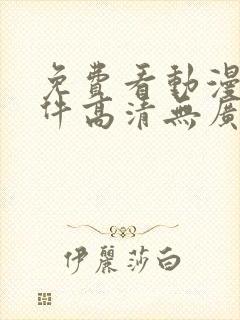 免費看動漫
件高清無廣
伊麗莎白